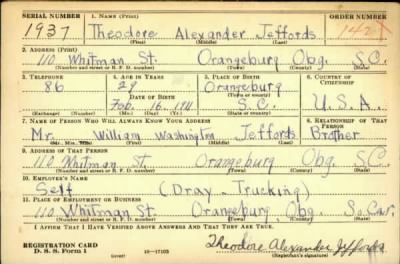 SERIAL NUMBER 1. NAME (Print) ORDER NUMBER
1937 Theodore Alexander Jeffords 142
(First) (Middle) (Last)
2. ADDRESS (Print)
110 Whitman St. Orangeburg Obg. S.C.
(Number and street or R. F. D. number) (Town) (County) (State)
3. TELEPHONE 4. AGE IN YEARS 5. PLACE OF BIRTH 6. COUNTRY OF CITIZENSHIP
86 29 Orangeburg
DATE OF BIRTH (Town or county)
Feb. 16 1911 S.C. U.S.A.
(Exchange) (Number) (Mo.) (Day) (Yr.) (State or country)
7. NAME OF PERSON WHO WILL ALWAYS KNOW YOUR ADDRESS 8. RELATIONSHIP OF THAT PERSON
Mr. William Washington Jeffords Brother
(Mr., Mrs., Miss) (First) (Middle) (Last)
9. ADDRESS OF THAT PERSON
110 Whitman St. Orangeburg Obg. S.C.
(Number and street or R. F. D. number) (Town) (County) (State)
10. EMPLOYER'S NAME
Self (Dray - Trucking)
11. PLACE OF EMPLOYMENT OR BUSINESS
110 Whitman St Orangeburg Obg.
(Number and street or R. F. D. number) (Town) (County) (State)
I AFFIRM THAT I HAVE VERIFIED ABOVE ANSWERS AND THAT THEY ARE TRUE.
REGISTRATION CARD
D. S. S. Form 1 (over) 16-17105 Theodore Alexander Jeffords
(Registrant's signature)